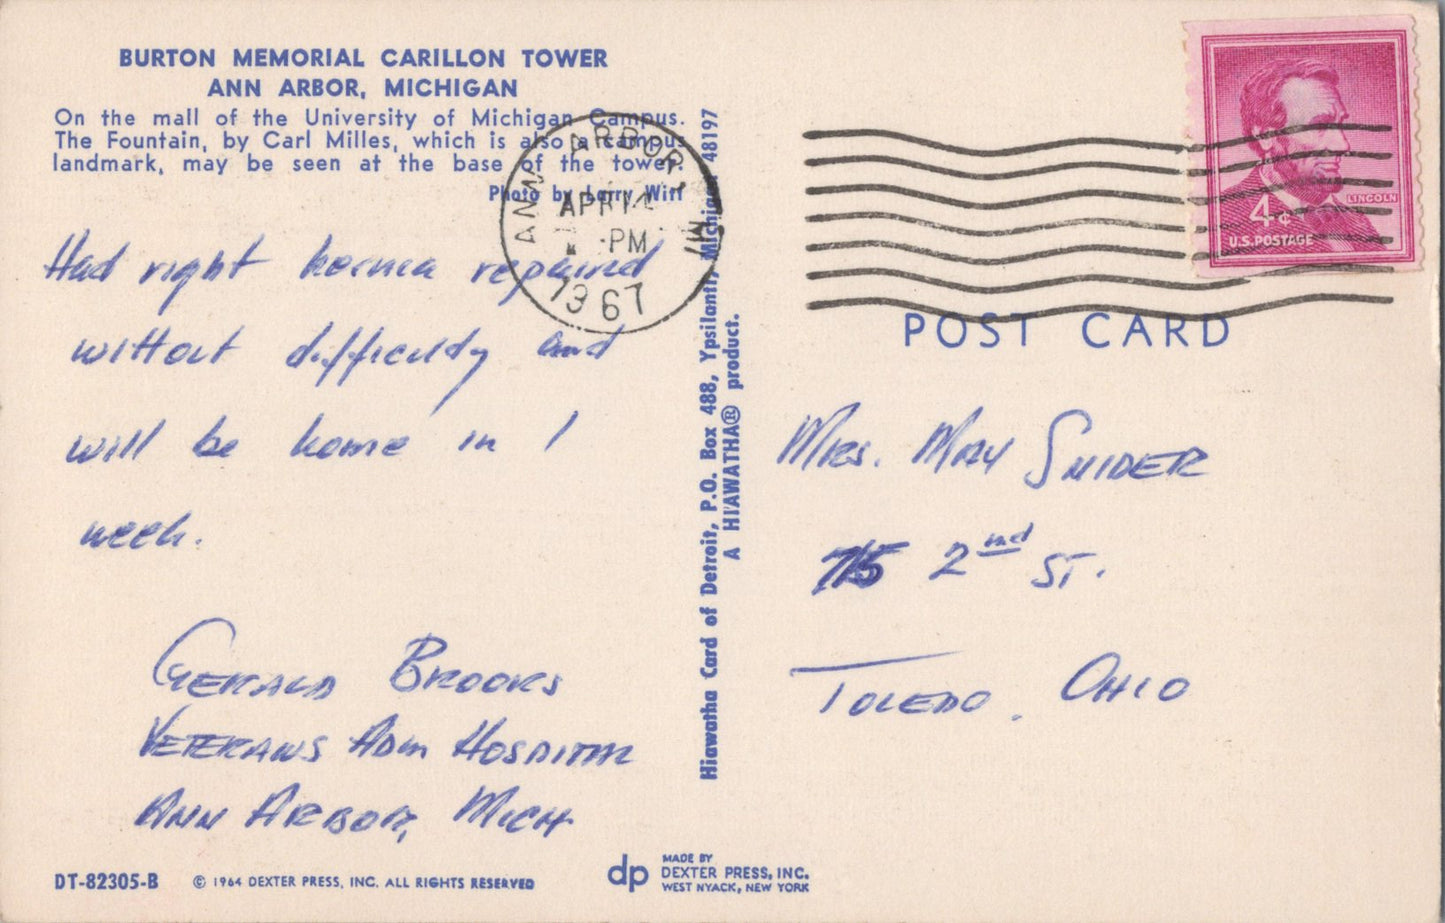 BURTON MEMORIAL CARILLON TOWER
ANN ARBOR, MICHIGAN
On the mall of the University of Michigan Campus.
The Fountain, by Carl Milles, which is also a campus
landmark, may be seen at the base of the tower.
Photo by Larry Witt
ANN ARBOR, MI
APR 14
PM
1967
Had right hernia repaired
without difficulty and
will be home in 1
week.
Gerald Brooks
Veterans Adm Hospital
Ann Arbor, Mich
DT-82305-B
© 1964 DEXTER PRESS, INC. ALL RIGHTS RESERVED
Hiawatha Card of Detroit, P.O. Box 488, Ypsilanti, Michigan 48197
A HIAWATHA® product.
dp
MADE BY
DEXTER PRESS, INC.
WEST NYACK, NEW YORK
LINCOLN
4¢
U.S. POSTAGE
POST CARD
Mrs. May Snider
715 2nd St.
Toledo, Ohio